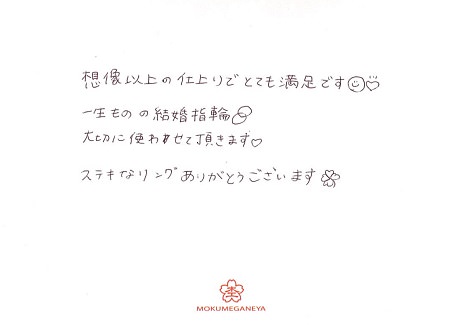 想像以上の仕上りでとても満足です☺♡
一生ものの結婚指輪
大切に使わせて頂きます♡
ステキなリングありがとうございます
杢
MOKUMEGANEYA